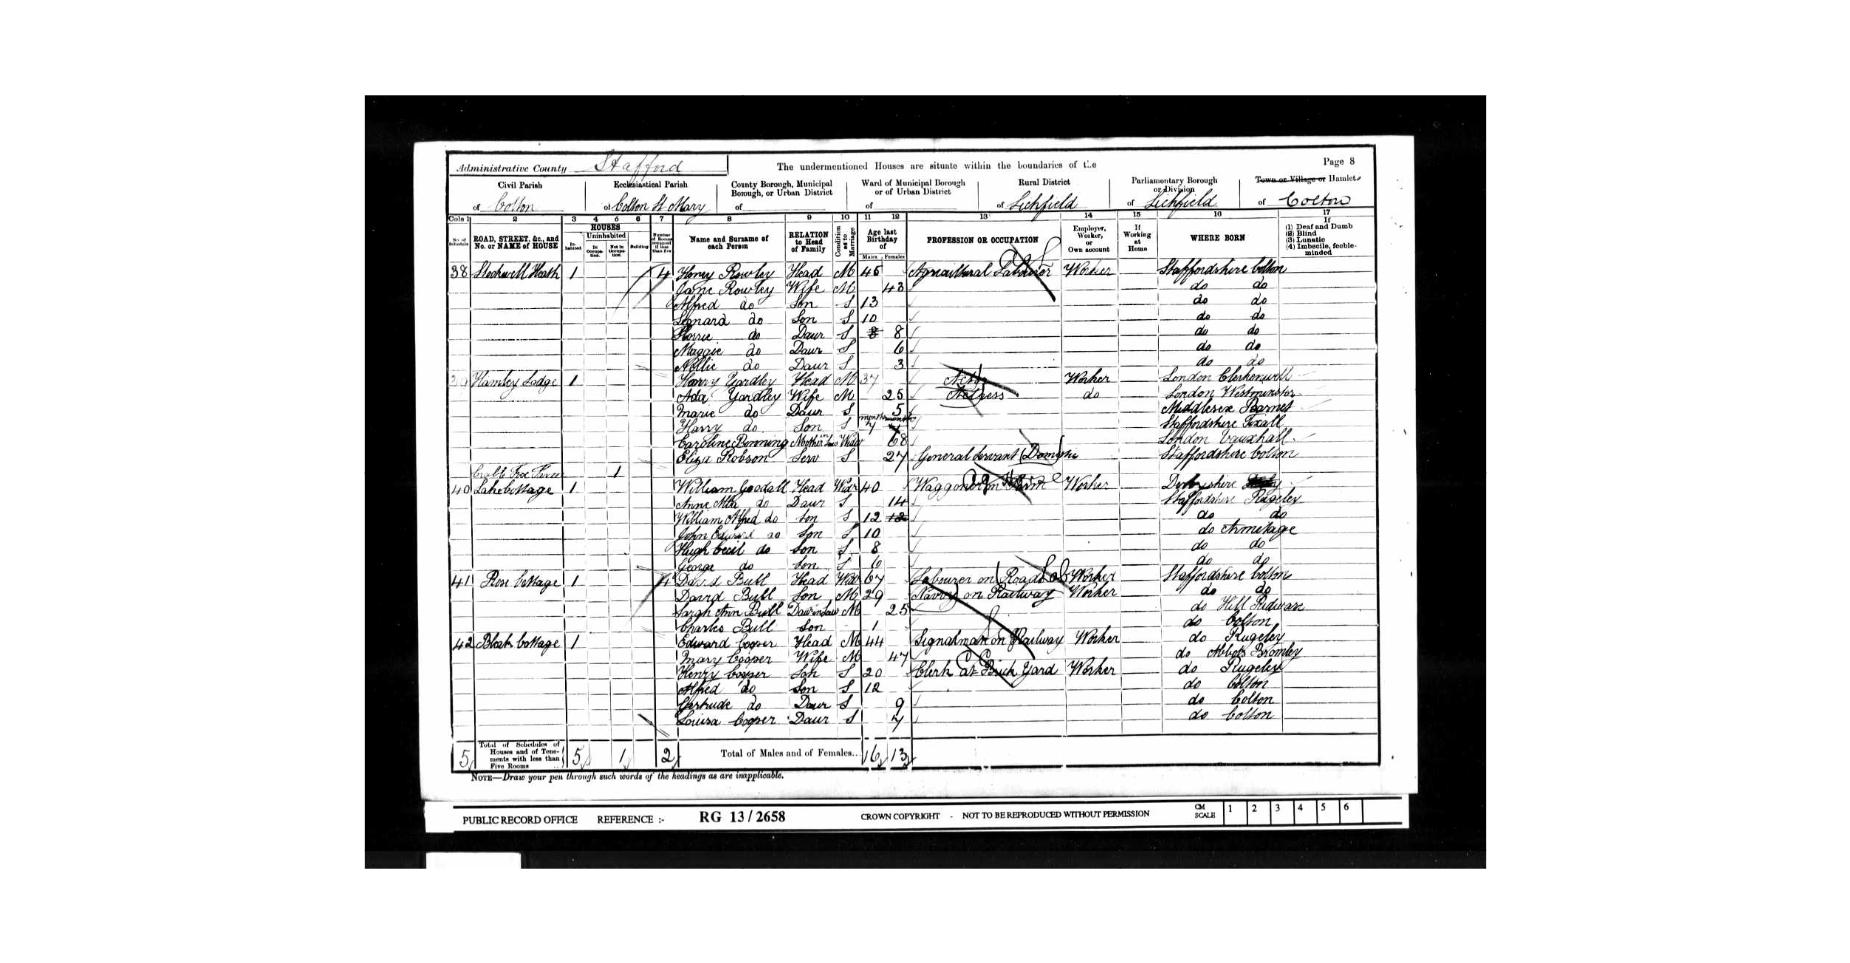 Administrative County Stafford The undermentioned Houses are situate within the boundaries of the Page 8
Civil Parish Ecclesiastical Parish County Borough, Municipal Borough, or Urban District Ward of Municipal Borough or of Urban District Rural District Parliamentary Borough or Division Town or Village or Hamlet
of Colton of Colton St Mary of of of Lichfield of Lichfield of Colton
Cols 1 2 3 4 5 6 7 8 9 10 11 12 13 14 15 16 17
No. of Schedule ROAD, STREET, &c., and No. or NAME of HOUSE HOUSES Inhabited Uninhabited In Occupation Not in Occupation Building Number of Rooms occupied if less than five Name and Surname of each Person RELATION to Head of Family Condition as to Marriage Age last Birthday of Males Females PROFESSION OR OCCUPATION Employer, Worker, or Own account If Working at Home WHERE BORN If (1) Deaf and Dumb (2) Blind (3) Lunatic (4) Imbecile, feeble-minded
38 Stockwell Heath 1 4 Henry Rowley Head M 45 Agricultural Labourer Worker Staffordshire Colton
Jane Rowley Wife M 43 do do
Alfred do Son S 13 do do
Leonard do Son S 10 do do
do Daur S 8 8 do do
Maggie do Daur S 6 do do
Nellie do Daur S 3 do do
39 Hamley Lodge 1 Henry Yardley Head M 37 Actor Worker London Clerkenwell
Ada Yardley Wife M 25 Actress do London Westminster
Marie do Daur S 5 Middlesex Barnes
Harry do Son S 7 months Staffordshire Tixall
Caroline Mother in Law Widow 68 London Vauxhall
Eliza Robson Serv S 27 General Servant (Domestic Staffordshire Colton
1
40 Lake Cottage 1 William Goodall Head Widr 40 Waggoner on Farm Worker Derbyshire
Annie do Daur S 14 Staffordshire Rugeley
William Alfred do Son S 12 12 do do
John Edward do Son S 10 do Armitage
Hugh Cecil do Son S 8 do do
George do Son S 6 do do
41 Rose Cottage 1 4 David Bull Head Widr 67 Labourer on Road Worker Staffordshire Colton
David Bull Son M 29 Navvy on Railway Worker do do
Sarah Ann Bull Daur in Law M 25 do Hill Ridware
Charles Bull Son 1 do Colton
42 Cottage 1 Edward Cooper Head M 44 Signalman on Railway Worker do Rugeley
Mary Cooper Wife M 47 do Abbots Bromley
Henry Cooper Son S 20 Clerk at Brick Yard Worker do Rugeley
Alfred do Son S 12 do Colton
Gertrude do Daur S 9 do Colton
Louisa Cooper Daur S 7 do Colton
5 Total of Schedules of Houses and of Tenements with less than Five Rooms 5 1 2 Total of Males and of Females.. 16 13
NOTE—Draw your pen through such words of the headings as are inapplicable.
PUBLIC RECORD OFFICE REFERENCE :- RG 13/2658 CROWN COPYRIGHT - NOT TO BE REPRODUCED WITHOUT PERMISSION CM SCALE 1 2 3 4 5 6